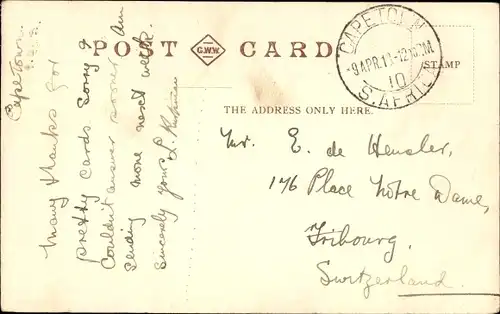 POST CARD
G.W.W.
CAPE TOWN
9 APR 10-12
10
S. AFRICA
STAMP
THE ADDRESS ONLY HERE.
Cape Town
Many thanks for
pretty cards Sorry I
Couldn't answer sooner Am
sending more next week.
Sincerely yours L.
Mr. E. de Heusler,
176 Place Notre Dame,
Fribourg.
Switzerland.